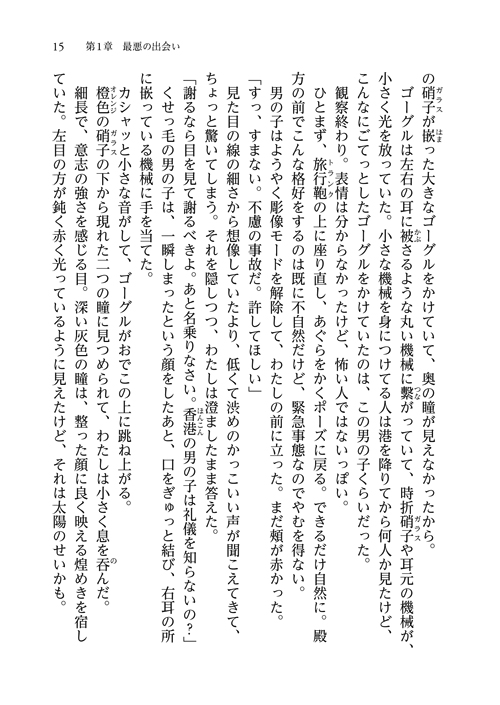 15　第1章　最悪の出会い
の硝子が嵌った大きなゴーグルをかけていて、奥の瞳が見えなかったから。
ゴーグルは左右の耳に被さるような丸い機械に繋がっていて、時折硝子や耳元の機械が、
小さく光を放っていた。小さな機械を身につけてる人は港を降りてから何人か見たけど、
こんなにごてっとしたゴーグルをかけていたのは、この男の子くらいだった。
観察終わり。表情は分からなかったけど、怖い人ではないっぽい。
ひとまず、旅行鞄の上に座り直し、あぐらをかくポーズに戻る。できるだけ自然に。殿
方の前でこんな格好をするのは既に不自然だけど、緊急事態なのでやむを得ない。
男の子はようやく彫像モードを解除して、わたしの前に立った。まだ頬が赤かった。
「すっ、すまない。不慮の事故だ。許してほしい」
見た目の線の細さから想像していたより、低くて渋めのかっこいい声が聞こえてきて、
ちょっと驚いてしまう。それを隠しつつ、わたしは澄ましたまま答えた。
「謝るなら目を見て謝るべきよ。あと名乗りなさい。香港の男の子は礼儀を知らないの？」
くせっ毛の男の子は、一瞬しまったという顔をしたあと、口をぎゅっと結び、右耳の所
に嵌っている機械に手を当てた。
カシャッと小さな音がして、ゴーグルがおでこの上に跳ね上がる。
橙色の硝子の下から現れた二つの瞳に見つめられて、わたしは小さく息を呑んだ。
細長で、意志の強さを感じる目。深い灰色の瞳は、整った顔に良く映える煌めきを宿し
ていた。左目の方が鈍く赤く光っているように見えたけど、それは太陽のせいかも。